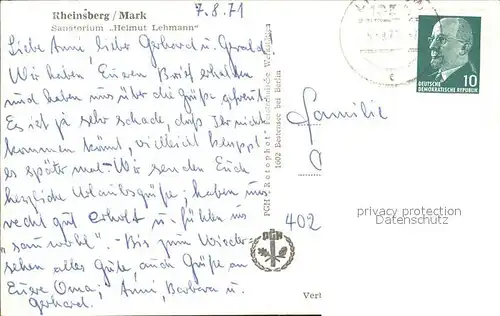 Rheinsberg / Mark
Sanatorium „Helmut Lehmann"
7.8.71
Liebe Anni, lieber Gerhard u. Gerald
Wir haben Eueren Brief erhalten
und haben uns über die Grüße gefreut.
Es ist ja sehr schade, daß Ihr nicht
kommen könnt, vielleicht klappt
es später mal. Wir senden Euch
herzliche Urlaubsgrüße; haben uns
recht gut erholt u. fühlen uns
„sauwohl". - Bis zum Wieder-
sehen alles Gute, auch Grüße an
Euere Oma; Anni, Barbara u.
Gerhard.
PGH „Rotophot"
1602 Bestensee bei Berlin
DEUTSCHE
DEMOKRATISCHE REPUBLIK
10
Familie
402
privacy protection
PGH
Vert